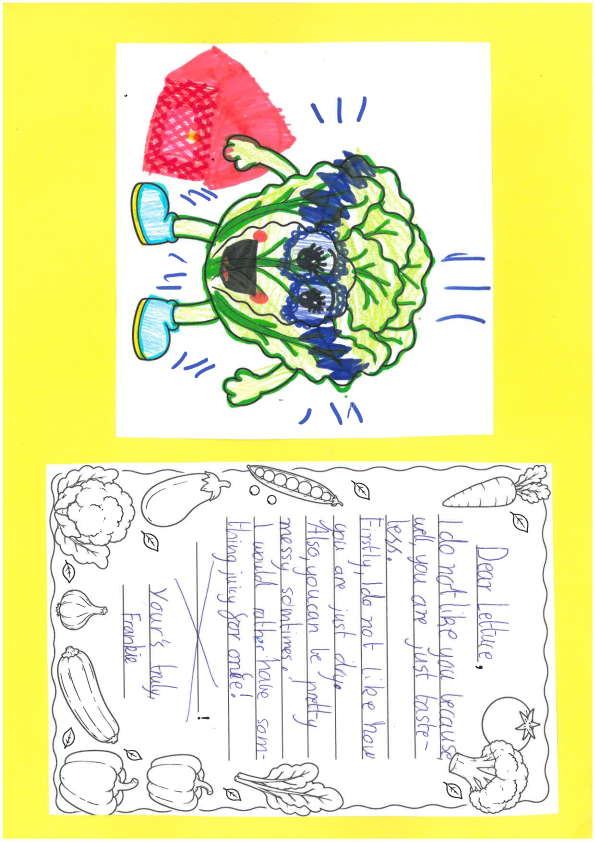 Dear Lettuce,
I do not like you because
well, you are just taste-
less.
Firstly, I do not like how
you are just dry.
Also, you can be pretty
messy somtimes.
I would rather have som-
thing juicy for once!
!
Your's truly,
Frankie